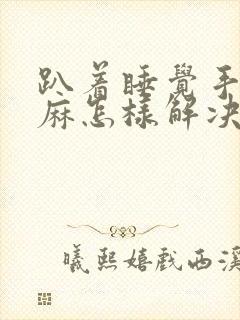 趴着睡覺手
麻怎樣解决
曦熙嬉戲西溪